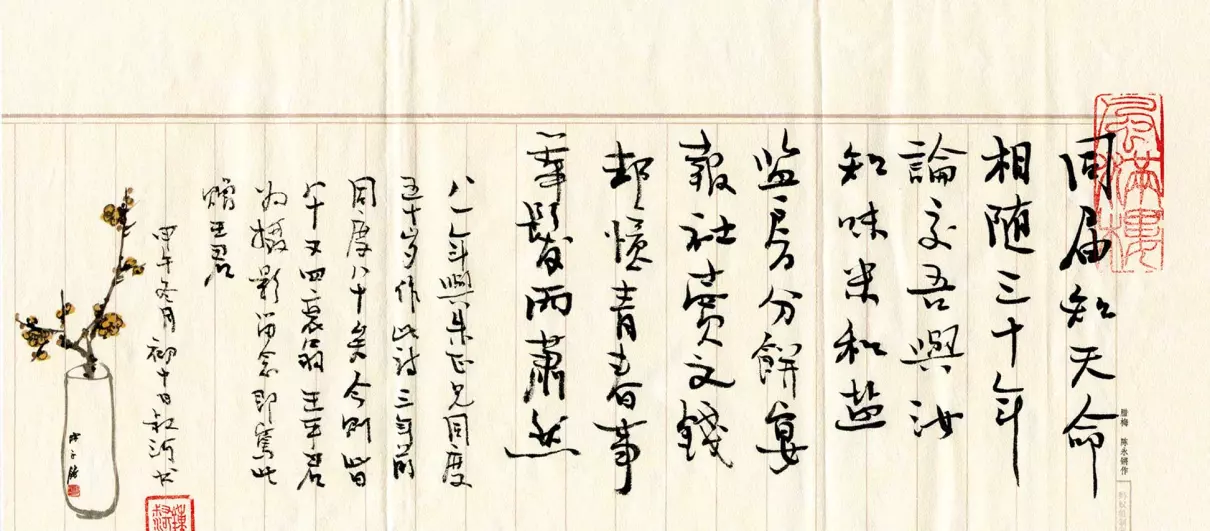 同届知天命
相随三十年
論交吾與汝
知味米和盐
监房分餅宴
報社賣文錢
却憶青春事
華髮两蕭然
八一年與朱正兄同度
五十岁作此詩三年前
同度八十矣今則皆
八十又四衰翁王平君
为攝影留念即寫此
赠王君
甲午冬月初十日叔河书
風滿樓
腊梅 陈永锵作